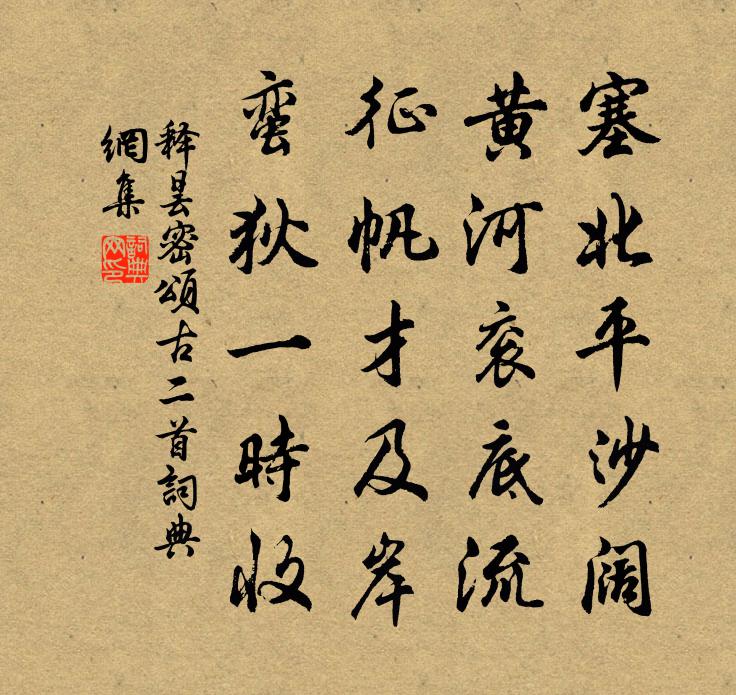 塞北平沙阔
黄河衮底流
征帆才及岸
蛮狄一時收
释昙密頌古二首詞典
網集
詞典网印